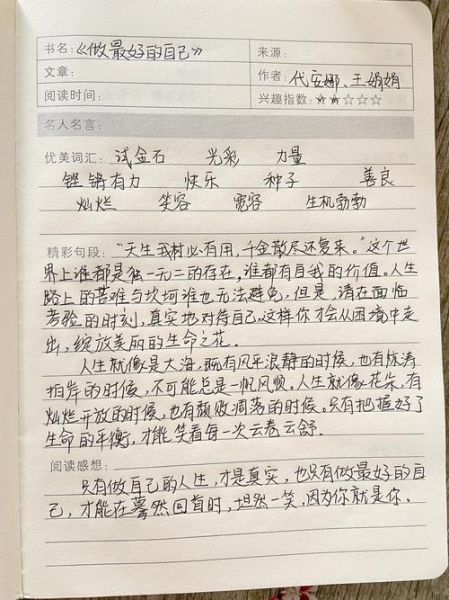 书名：《做最好的自己》 来源：
文章： 作者：代安娜、王娟娟
阅读时间： 兴趣指数：★★☆☆☆
名人名言：
优美词汇： 试金石 光彩 力量
铿锵有力 快乐 种子 善良
灿烂 笑容 宽容 生机勃勃
精彩句段：“天生我材必有用，千金散尽还复来。”这个世
界上谁都是独一无二的存在，谁都有自我的价值。人生
路上的苦难与坎坷谁也无法避免，但是，请在面临
考验的时刻，真实地对待自己，这样你才会从困境中走
出，绽放美丽的生命之花。
人生就像是大海，既有风平浪静的时候，也有惊涛
拍岸的时候，不可能总是一帆风顺。人生就像花朵，有
灿烂开放的时候，也有颓败凋落的时候。只有把握好了
生命的平衡，才能笑看每一次云卷云舒。
阅读感想：
只有做自己的人生，才是真实，也只有做最好的自
己，才能在蓦然回首时，坦然一笑，因为你就是你。